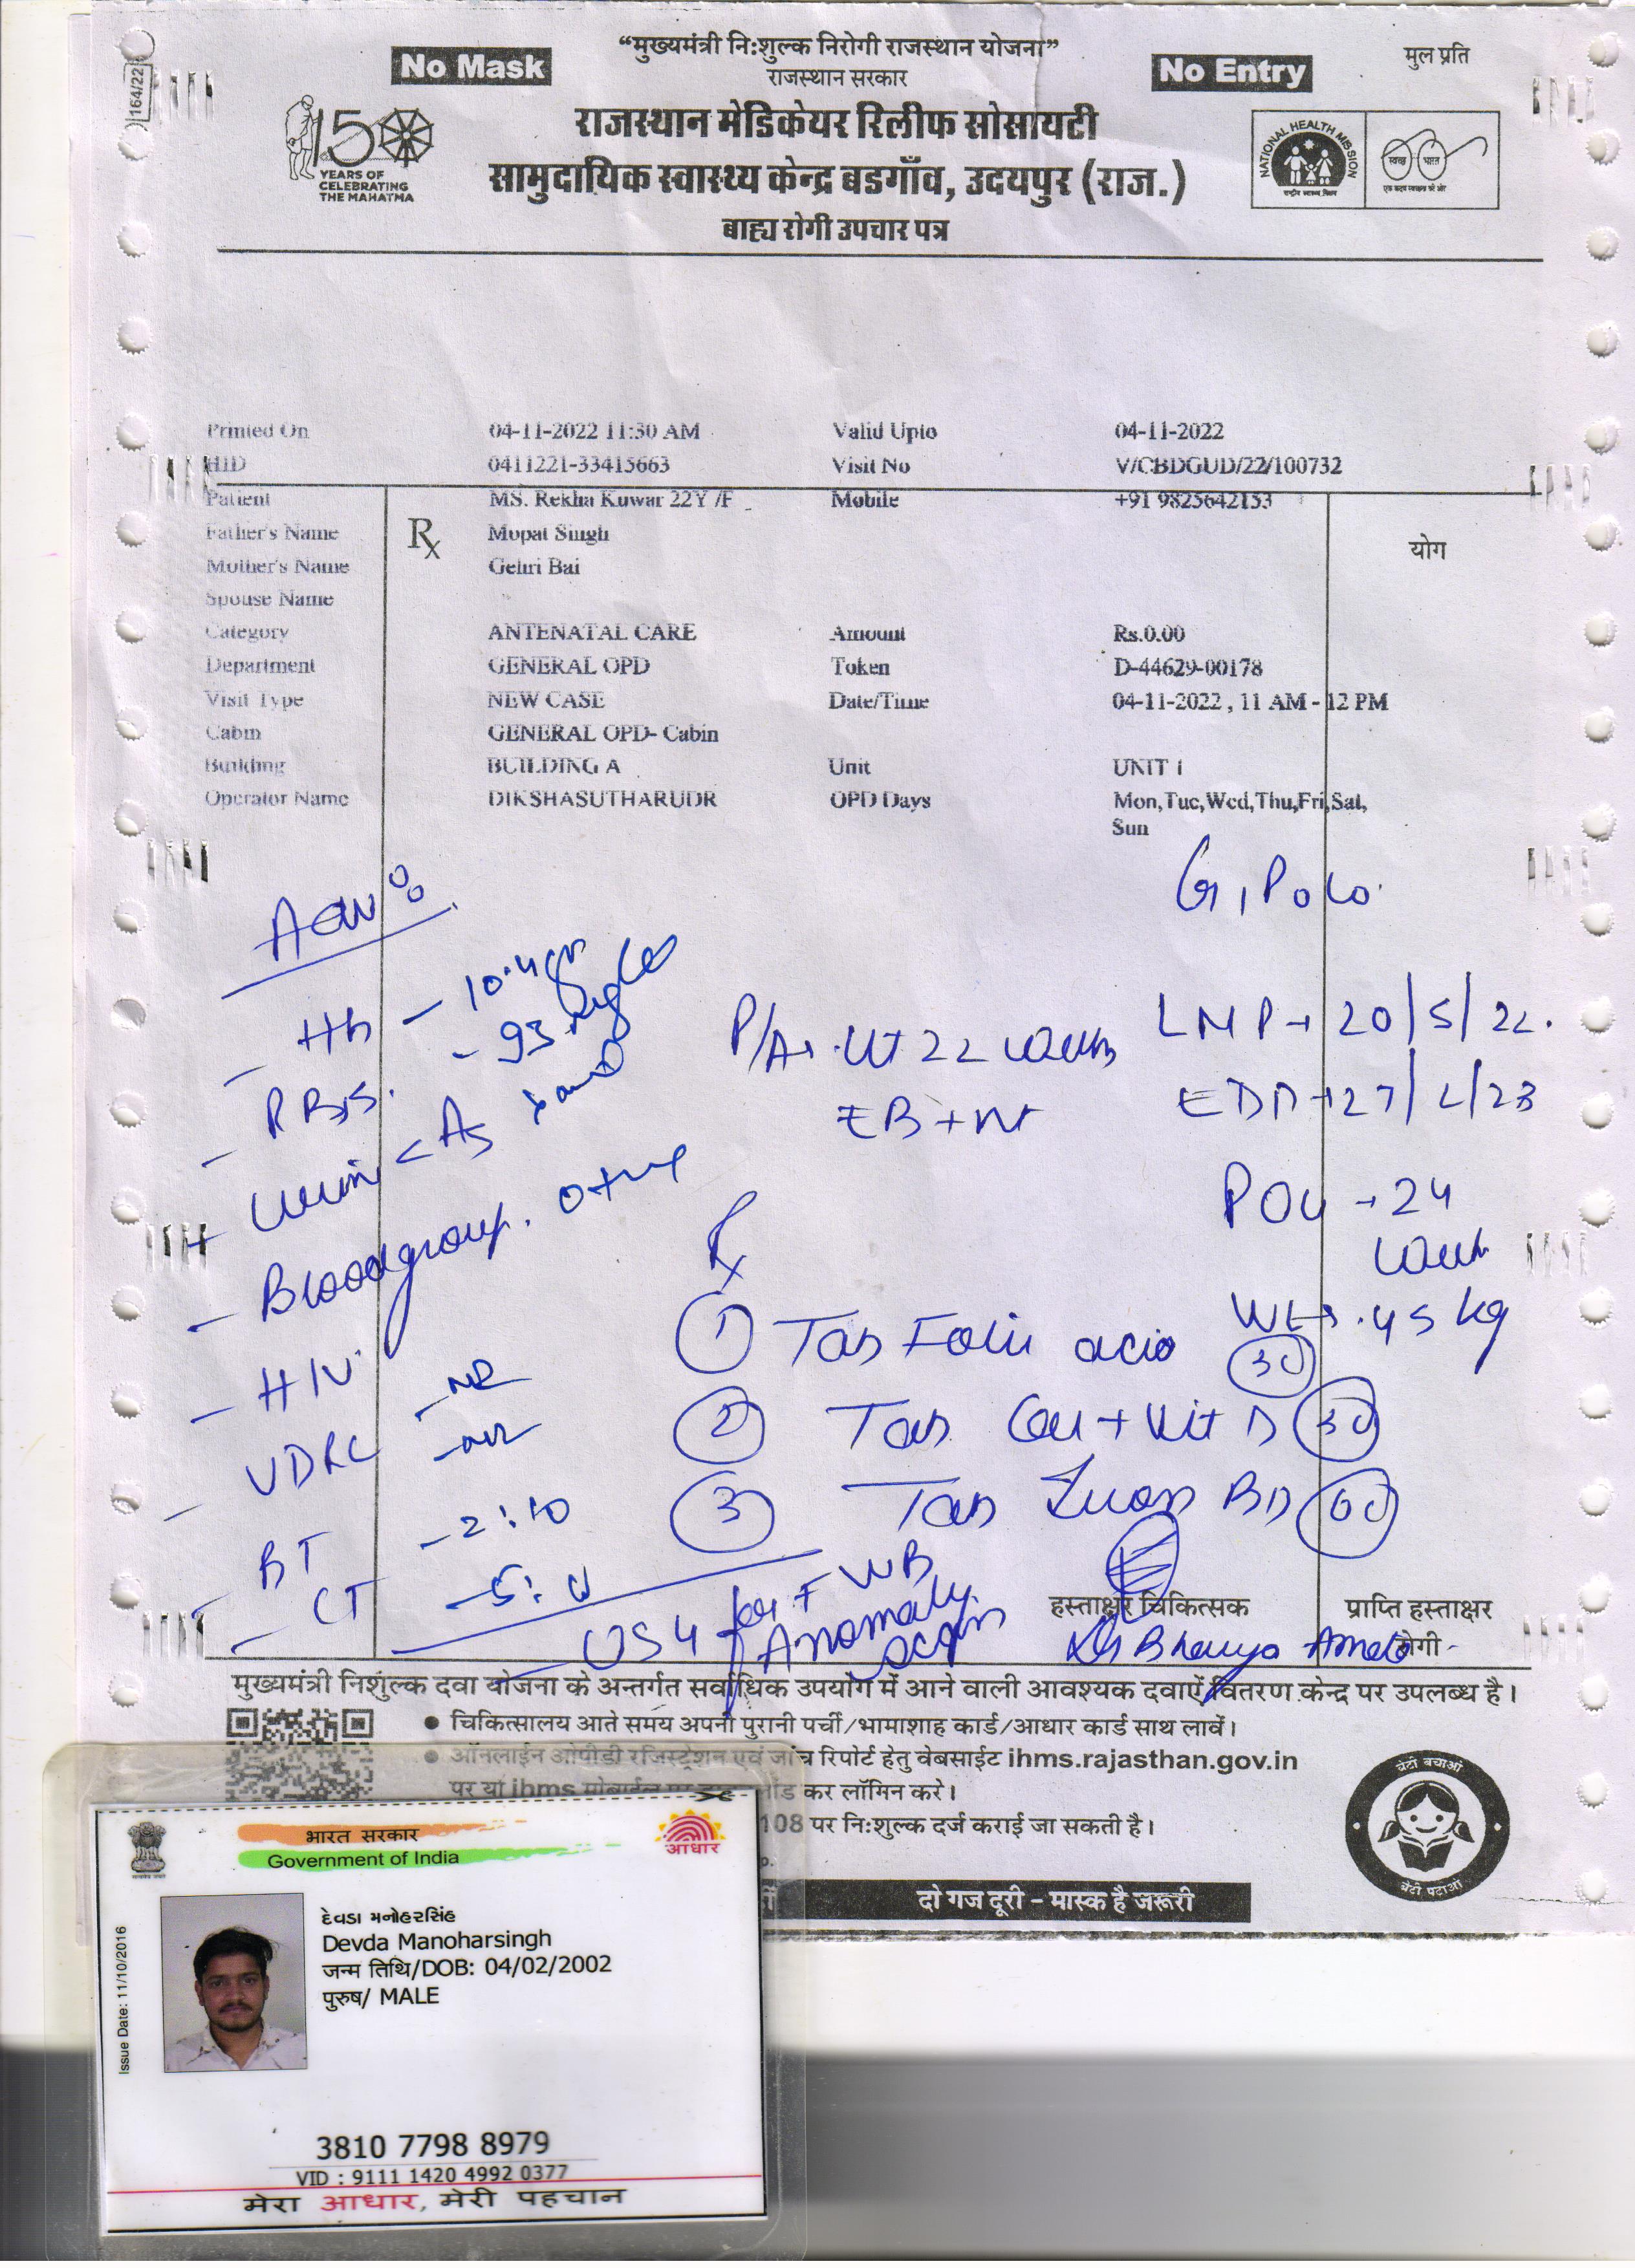 164/22
No Mask
“मुख्यमंत्री नि:शुल्क निरोगी राजस्थान योजना”
No Entry
मुल प्रति
राजस्थान सरकार
150
YEARS OF
CELEBRATING
THE MAHATMA
राजस्थान मेडिकेयर रिलीफ सोसायटी
NATIONAL HEALTH MISSION
स्वच्छ भारत
एक कदम स्वच्छता की ओर
सामुदायिक स्वास्थ्य केन्द्र बडगाँव, उदयपुर (राज.)
बाह्य रोगी उपचार पत्र
Printed On 04-11-2022 11:30 AM Valid Upto 04-11-2022
HID 0411221-33415663 Visit No V/CBDGUD/22/100732
Patient MS. Rekha Kuwar 22Y /F Mobile +91 9825642153
Father's Name Rx Mopat Singh योग
Mother's Name Gehri Bai
Spouse Name
Category ANTENATAL CARE Amount Rs.0.00
Department GENERAL OPD Token D-44629-00178
Visit Type NEW CASE Date/Time 04-11-2022 , 11 AM - 12 PM
Cabin GENERAL OPD- Cabin
Building BUILDING A Unit UNIT 1
Operator Name DIKSHASUTHARUDR OPD Days Mon,Tue,Wed,Thu,Fri,Sat,
Sun
G1P0L0
- Hb - 10.4 gm
- RBS. - 93 mg/
P/A
22
LMP → 20/5/22.
EDD → 27/2/23
- Blood group. O+ve
POG → 24
week
Wt → 45 kg
- HIV - NR
- VDRL - NR
- BT - 2:10
- CT
Rx
1 Tab Folic acid 30
2 Tab Cal + Vit D 30
3 Tab BD 60
USG for FWB
Anomaly
scan
हस्ताक्षर चिकित्सक
प्राप्ति हस्ताक्षर
रोगी
मुख्यमंत्री निशुल्क दवा योजना के अन्तर्गत सर्वाधिक उपयोग में आने वाली आवश्यक दवाऐं वितरण केन्द्र पर उपलब्ध है।
● चिकित्सालय आते समय अपनी पुरानी पर्ची/भामाशाह कार्ड/आधार कार्ड साथ लावें।
● ऑनलाईन ओपीडी रजिस्ट्रेशन एवं जांच रिपोर्ट हेतु वेबसाईट ihms.rajasthan.gov.in
पर या ihms कर लॉगिन करे।
108 पर नि:शुल्क दर्ज कराई जा सकती है।
दो गज दूरी - मास्क है जरूरी
बेटी बचाओ
बेटी पढाओ
भारत सरकार
Government of India
आधार
દેવડા મનોહરસિંહ
Devda Manoharsingh
जन्म तिथि/DOB: 04/02/2002
पुरुष/ MALE
Issue Date: 11/10/2016
3810 7798 8979
VID : 9111 1420 4992 0377
मेरा आधार, मेरी पहचान